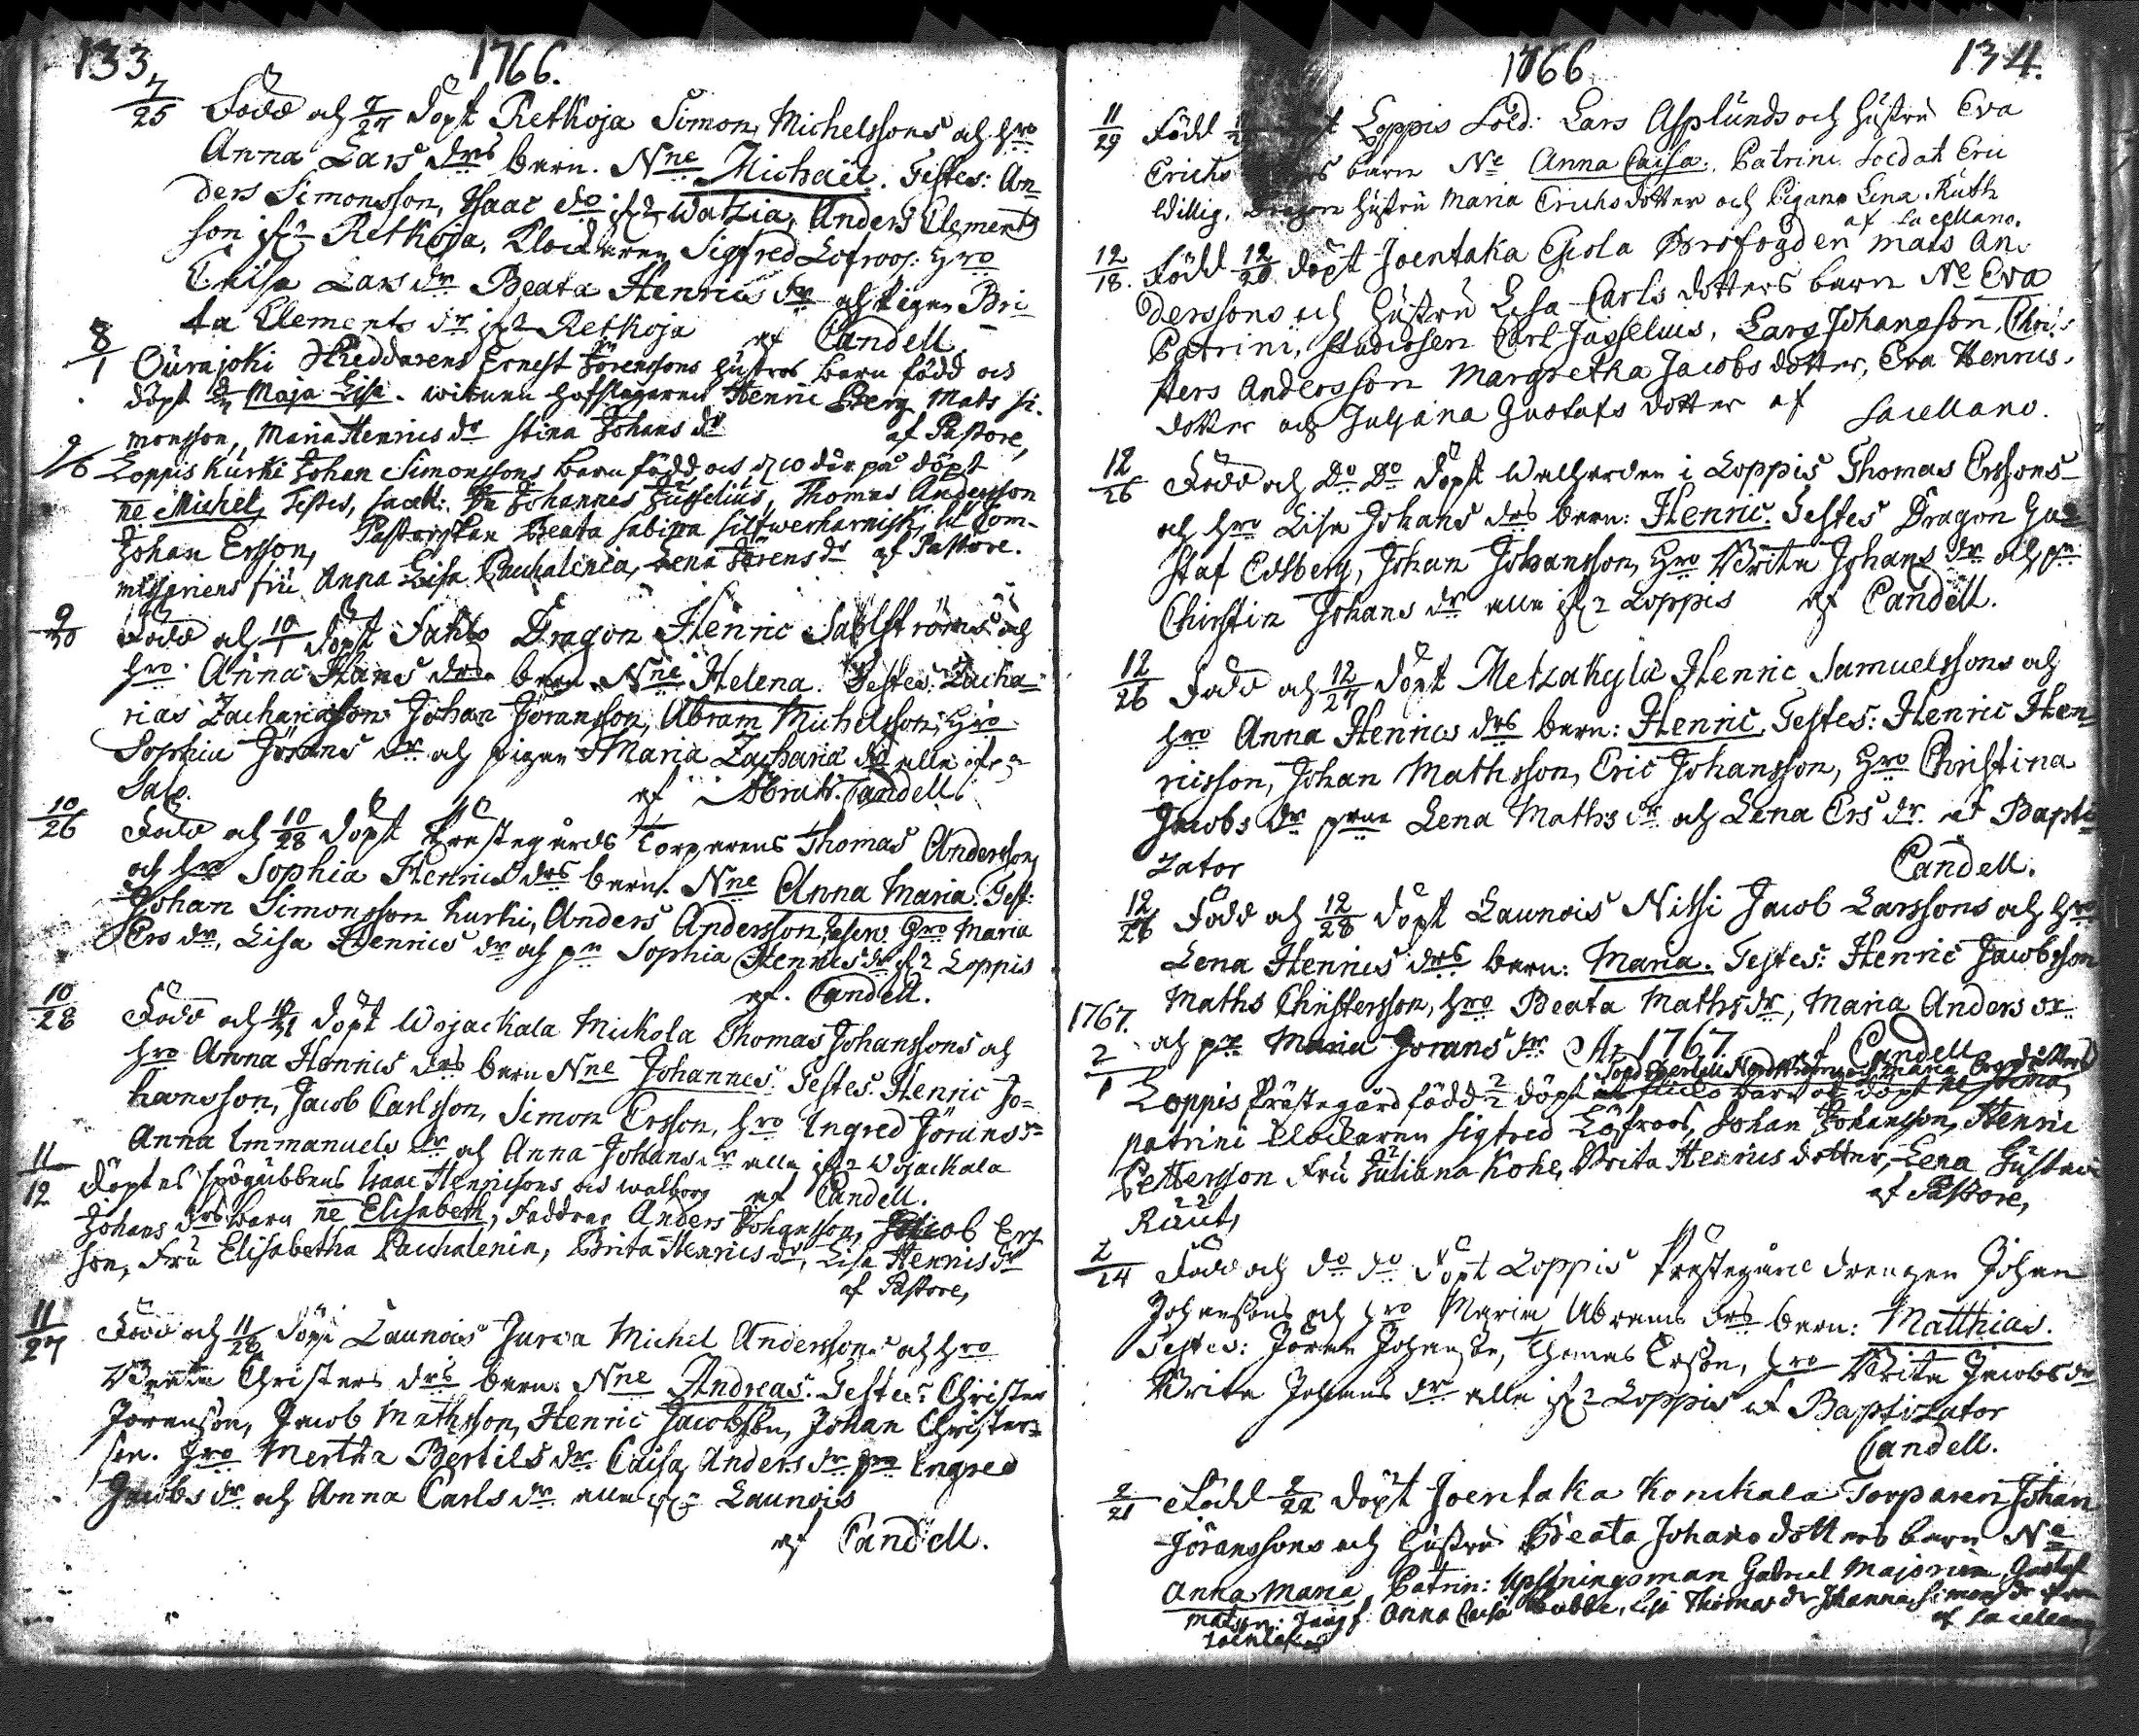 133, 1766.
7/25 Född och 7/27 döpt Retkoja Simon Michelssons och hro
Anna Lars drs barn. Nne Michaël. Testes: An
ders Simonsson, Isaac do ifr Watzia, Anders Clements
son ifr Retkoja, Klockaren Sigfred Löfroos: Hro
Caisa Lars dr Beata Henrics dr och pigan Bri
ta Clements dr ifr Retkoja af Candell
8/1 Ourajoki Skreddarens Ernest Jörenssons hustros barn född och
döpt Maja Lisa. witnen hofslagaren Henric Berg Mats Si-
monsson, Maria Henrics dr Stina Johans dr af Pastore,
9/6 Loppis Kurki Johan Simonssons barn född och d 10 där på döpt
ne Michel, Testes, sacell: Johannes Jusselius, Thomas Andersson
Johan Ersson, Pastorskan Beata Sabina Silfwerharnisk, H Com-
misariens fru Anna Lisa Pauhalenia, Lena Jörens dr af Pastore.
9/30 Född och 10/1 döpt Sahlo Dragon Henric Sahlströms och
hro. Anna Hans drs barn Nne Helena. Testes: Zacha-
rias Zachariasson Johan Joransson, Abram Michelsson, Hro
Sophia Jörans dr och pigan Maria Zacharia dr alla ifr
Salo. af Abrah. Candell.
10/26 Född och 10/28 döpt Prästegårds Torparens Thomas Anderssons
och hro Sophia Henrics drs barn. Nne Anna Maria. Test:
Johan Simonsson Kurki, Anders Andersson, Hro Maria
Ers dr, Lisa Henrics dr och pn Sophia Henrics dr ifr Loppis
af. Candell.
10/28 Född och döpt Wojackala Mickola Thomas Johanssons och
hro Anna Henrics drs barn Nne Johannes. Testes. Henric Jo-
hansson, Jacob Carlsson, Simon Ersson, hro Ingred Jörans dr
Anna Immanuels dr och Anna Johans dr alla ifr Wojackala
af Candell.
11/12 Döptes spögubbens Isaac Henricsons och Walborg
Johans drs barn ne Elisabeth, Faddrar Anders Johansson, Jacob Ers
son, Fru Elisabetha Pauhalenia, Brita Henrics dr, Lisa Henrics dr
af Pastore,
11/27 Född och 11/28 döpt Launois Jurwa Michel Anderssons och hro
Christers drs barn. Nne Andreas. Testes: Christer
Jörensson, Jacob Mathsson, Henric Jacobsson, Johan Christers-
son. Hro Mertha Bertils dr Caisa Anders dr pn Ingred
Jacobs dr och Anna Carls dr alla ifr Launois
af Candell.
1766 134.
11/29 Född Loppis Sold: Lars Asplunds och hustru Eva
Erichs barn Ne Anna Caisa. Patrini Soldat Eric
Willig, Dragon hustru Maria Erichsdotter och Pigan Lena Ruth
af Sacellano.
12/18. Född 12/20 döpt Joentaka Eskola Brofogden Mats An-
derssons och hustru Lisa Carls dotters barn Ne Eva
Patrini, Studiosen Carl Jusselius, Lars Johansson, Chri-
sters Andersson Margretha Jacobs dotter, Eva Henrics
dotter och Juliana Gustafs dotter af Sacellano.
12/26 Född och Do Do döpt i Loppis Thomas Erssons
och hro Lisa Johans drs barn: Henric. Testes Dragon Gu-
staf Edberg, Johan Johansson, Hro Brita Johans dr och pn
Chirstin Johans dr alla ifr Loppis af Candell.
12/26 Född och 12/27 döpt Metzakylä Henric Samuelssons och
hro Anna Henrics drs barn: Henric. Testes: Henric Hen-
ricsson, Johan Mathsson, Eric Johansson, Hro Christina
Jacobs dr Lena Maths dr och Lena Ers dr. af Bapti
zator Candell.
12/26 Född och 12/28 döpt Launois Nitsi Jacob Larssons och hro
Lena Henrics drs barn: Maria. Testes: Henric Jacobsson
Maths Christersson, hro Beata Maths dr, Maria Anders dr
och pn Maria Jorans dr af Candell
1767. A: 1767
2/1 Loppis Prästegård född 2/2 döpt
patrini Klockaren Sigfred Löfroos, Johan Johansson, Henric
Pettersson Fru Juliana Kohl, Brita Henrics dotter, Lena Gustava
Ruut, af Pastore,
2/14 Född och do do döpt Loppis Prästegård drengen Johan
Johanssons och hro Maria Abrams drs barn: Matthias.
Testes: Jören Johansson, Thomas Ersson, hro Brita Jacobs dr
Brita Johans dr alla ifr Loppis af Baptizator
Candell.
2/21 Född 2/22 döpt Joentaka Konickala Torparen Johan
Jöranssons och hustru Beata Johans dotters barn Ne
Anna Maria, Patrin: Upsyningsman Gabriel Majorin, Gustaf
Matsson: Jungf. Anna Caisa Bubbe, Lisa Thomas dr Johanna Simons dr
af Sacellano